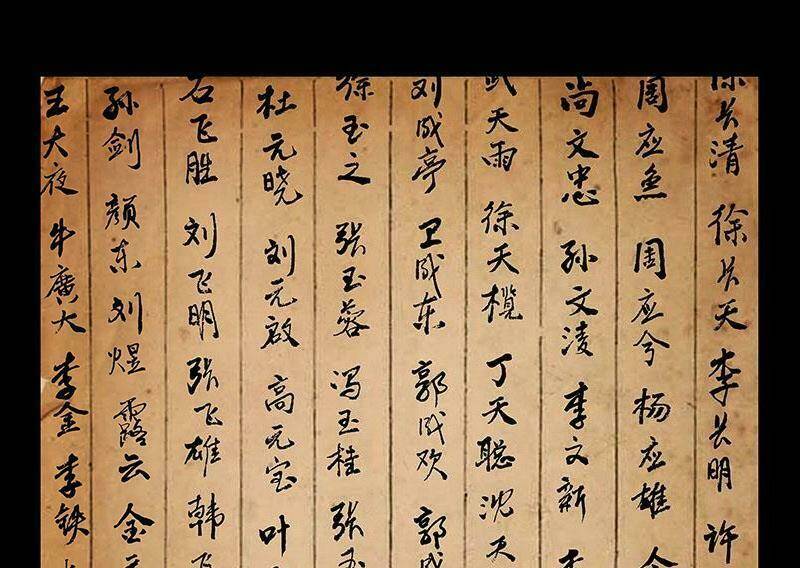 徐长清 徐长天 李长明 许
周应鱼 周应兮 杨应雄 金
尚文忠 孙文凌 李文新 李
武天雨 徐天榄 丁天聪 沈天
刘成亭 卫成东 郭成欢 郭成
徐玉之 张玉蓉 冯玉桂 张玉
杜元晓 刘元啟 高元宝 叶
石飞胜 刘飞明 张飞雄 韩飞
孙剑 颜东 刘煜 露云 金
王大夜 牛廣大 李金 李铁